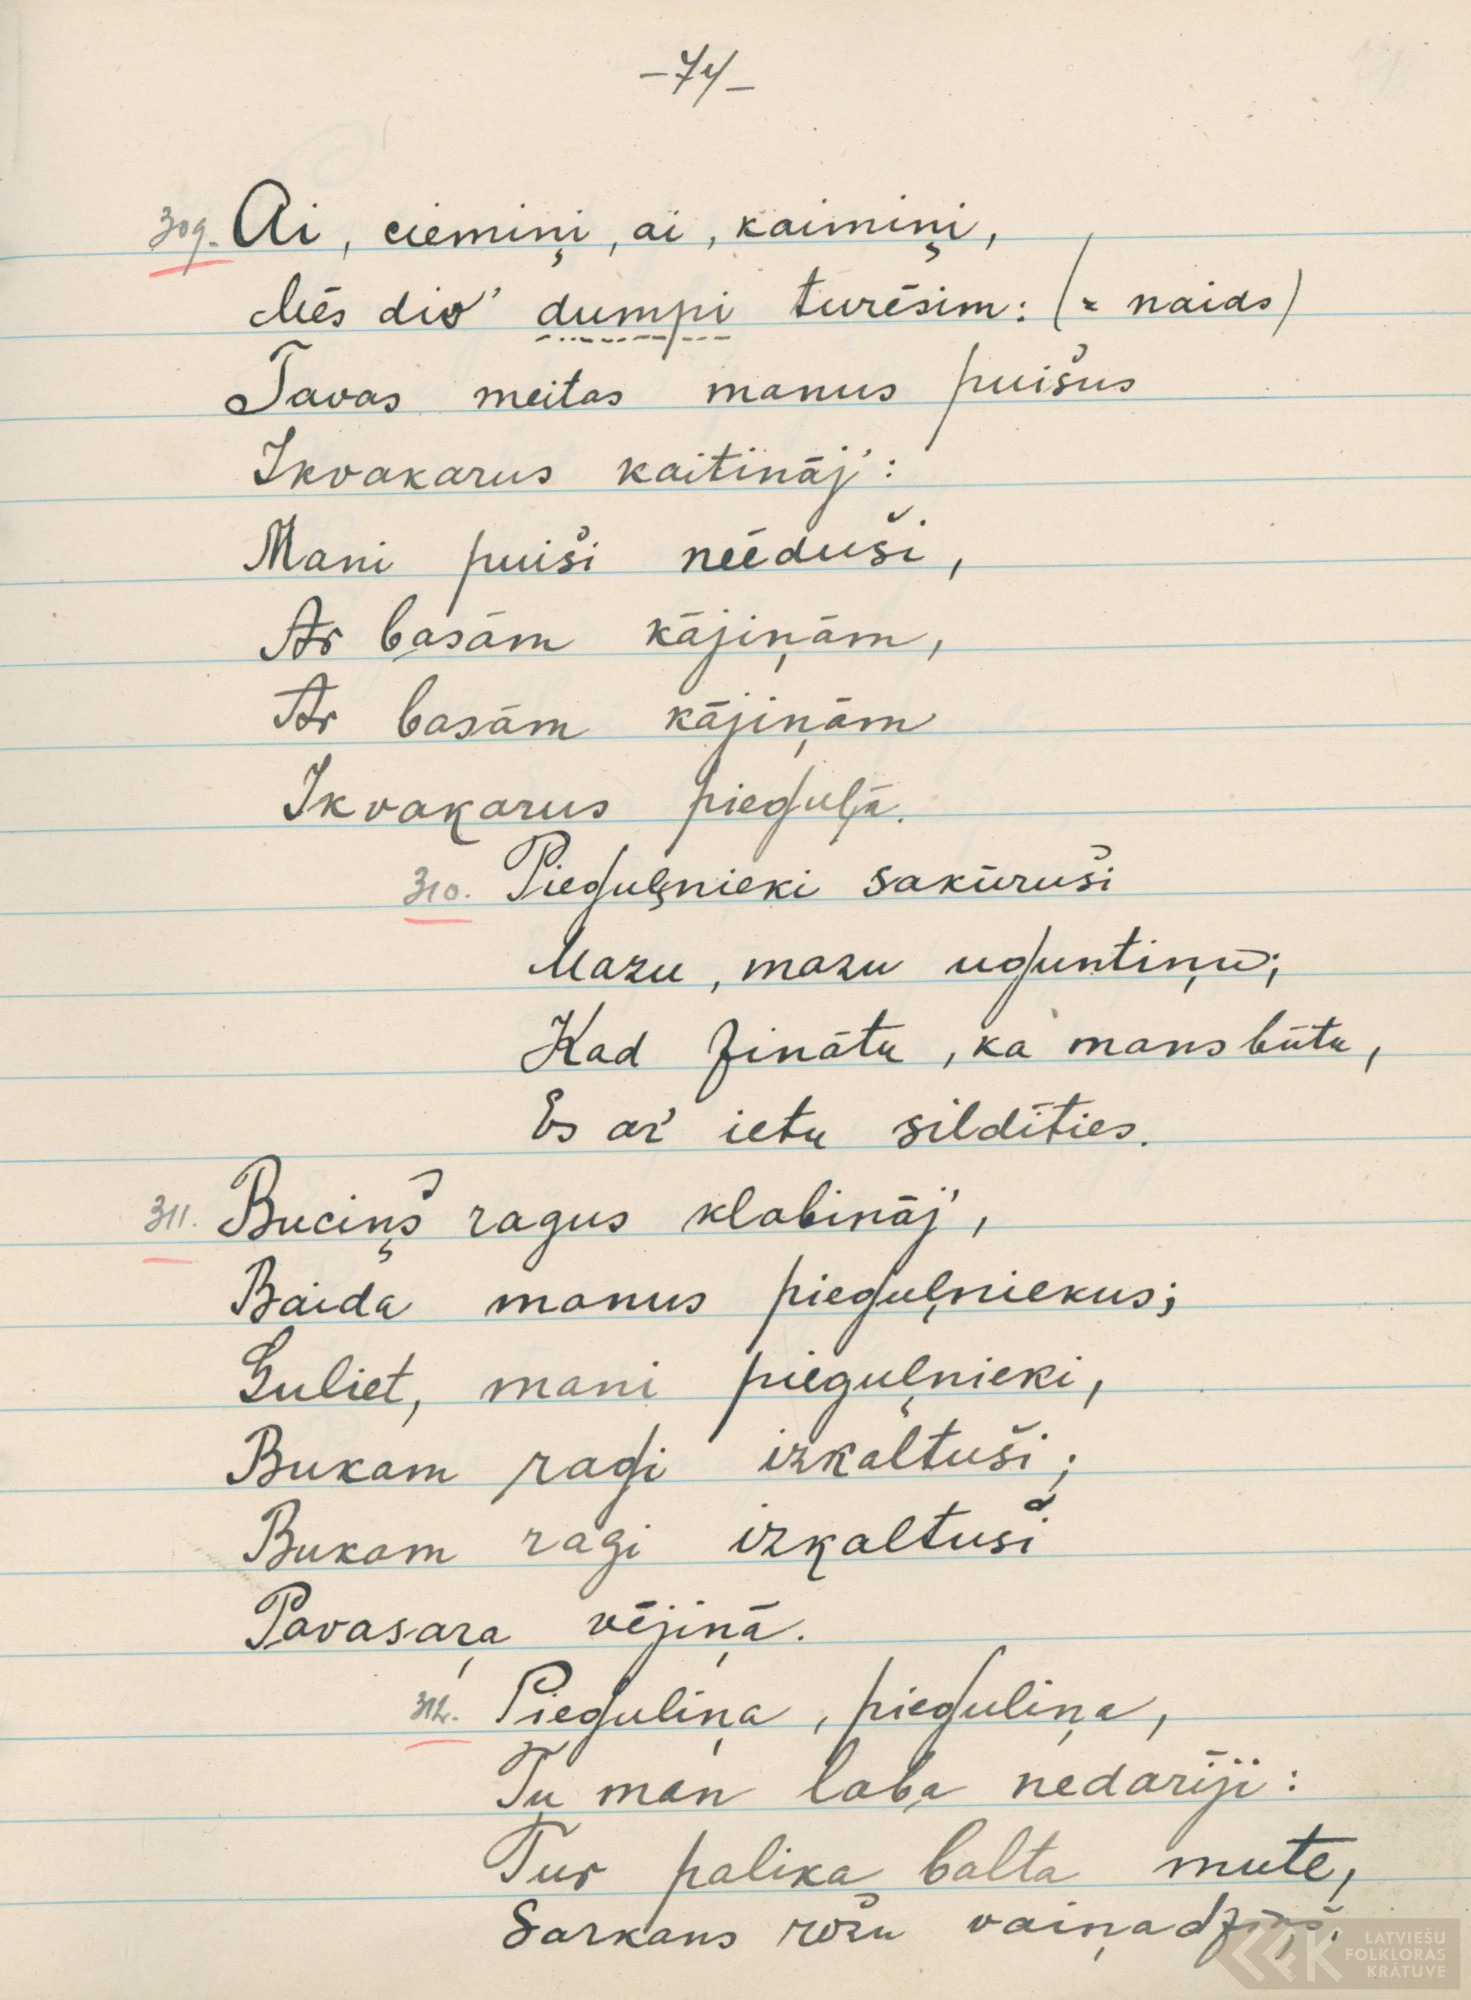 -74-
309. Ai, ciemiņi, ai, kaimiņi,
Mēs div' dumpi turēsim: (= naids)
Tavas meitas manus puišus
Ikvakarus kaitināj':
Mani puiši neēduši,
Ar basām kājiņām,
Ar basām kājiņām
Ikvakarus pieguļā.
310. Pieguļnieki sakūruši
Mazu, mazu uguntiņu;
Kad zinātu, ka mans būtu,
Es ar' ietu sildīties.
311. Buciņš ragus klabināj',
Baida manus pieguļniekus;
Guliet, mani pieguļnieki,
Bukam ragi izkaltuši;
Bukam ragi izkaltuši
Pavasaŗa vējiņā.
312. Pieguliņa, pieguliņa,
Tu man laba nedarīji:
Tur palika balta mute,
Sarkans rožu vaiņadziņš.
LATVIEŠU
FOLKLORAS
KRĀTUVE